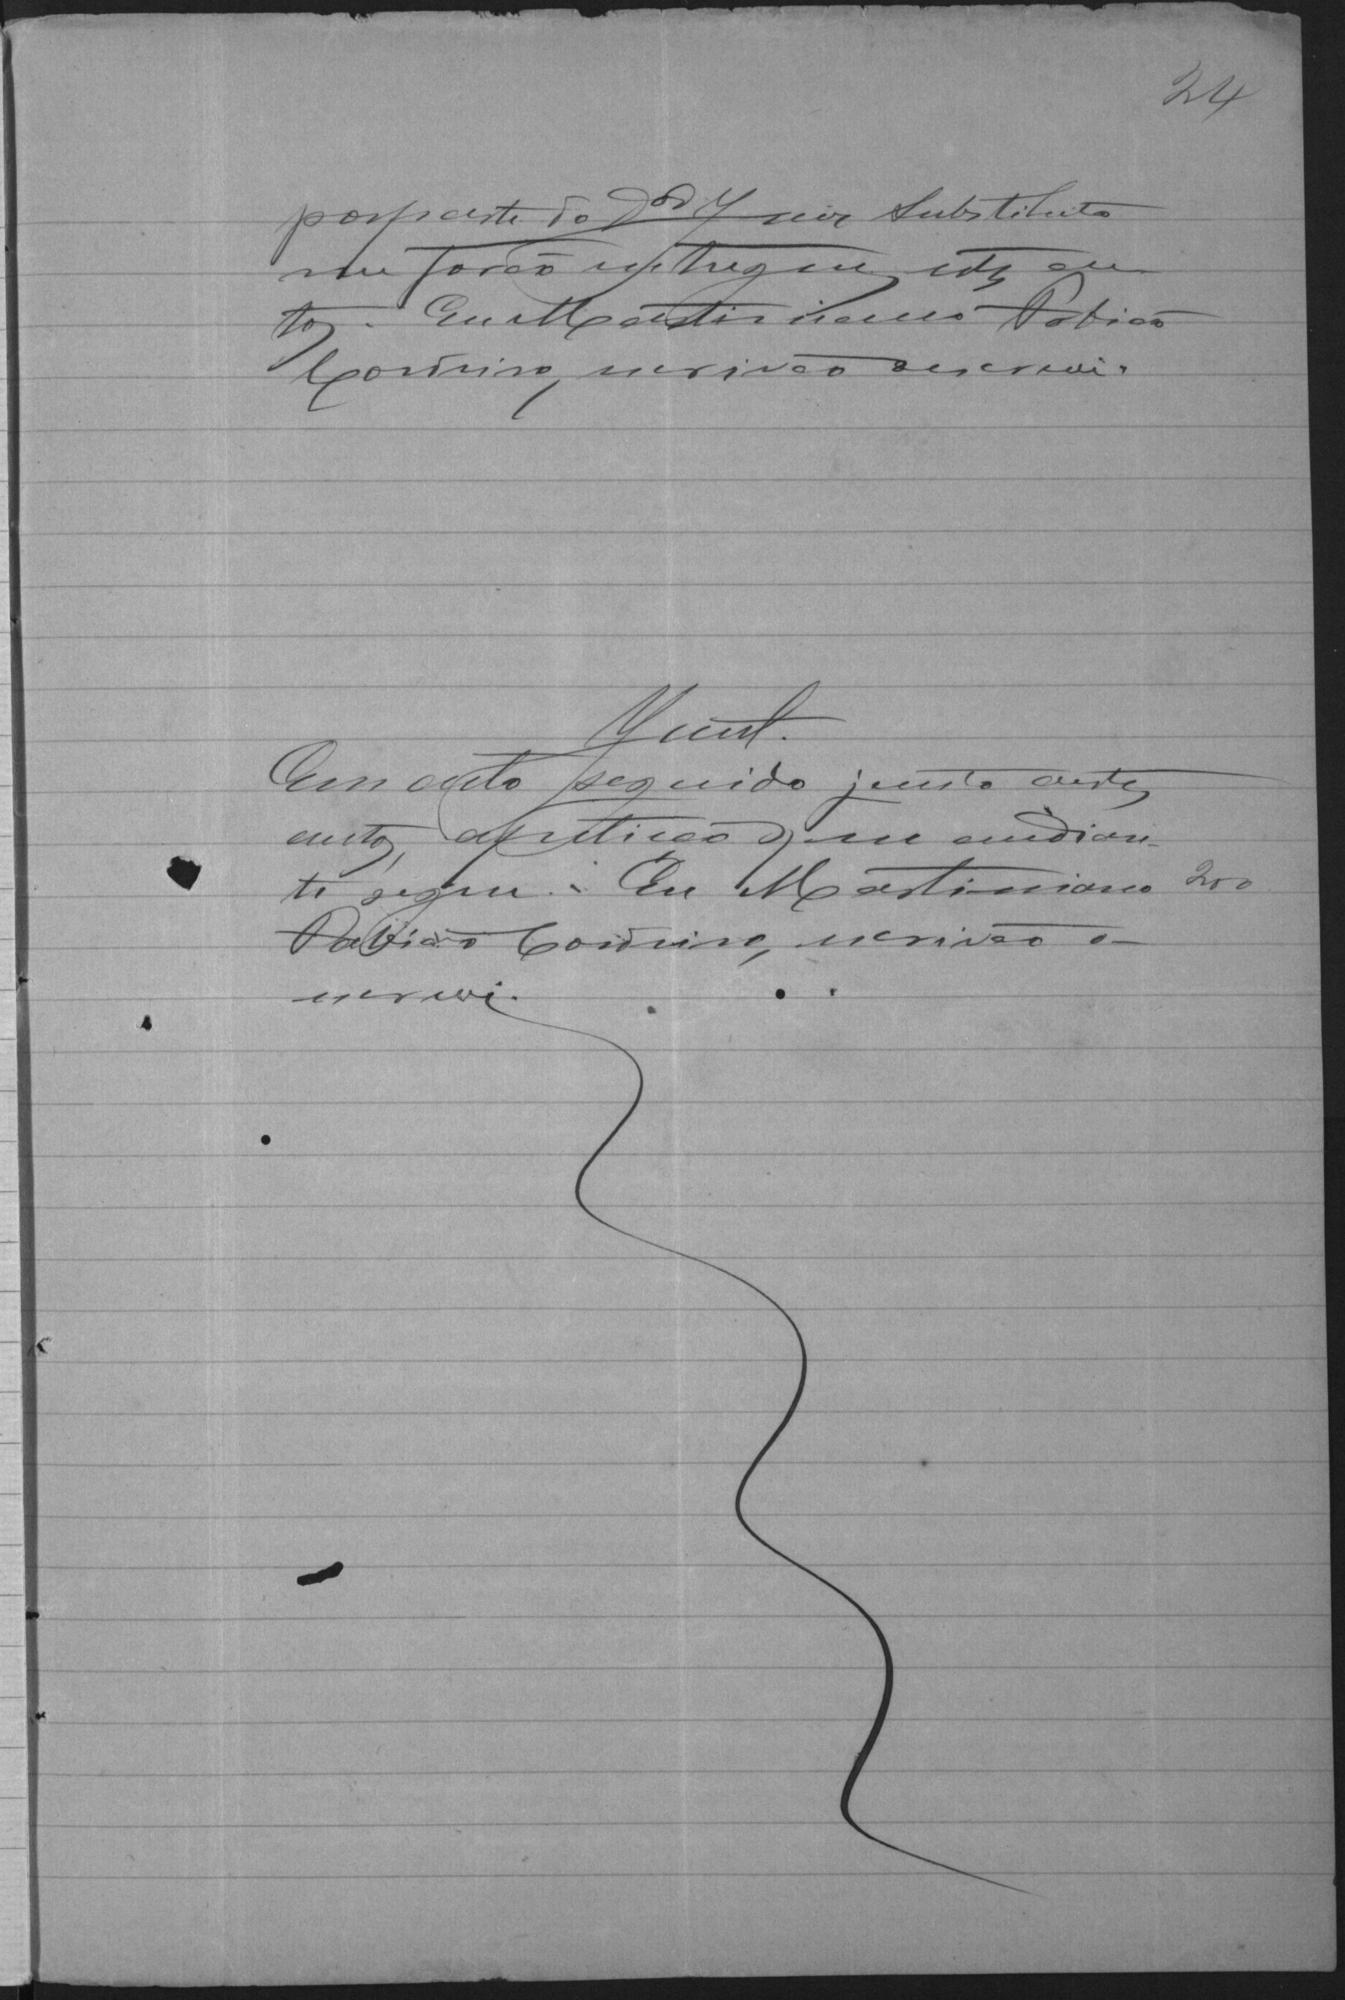 24
por parte do Dor Juiz Substituto
me forão entregues estes au-
tos. Eu Martiniano Fabião
Cordeiro, escrivão o escrevi.
Junt.
Em acto seguido junto a estes
autos, a petição que em dian-
te segue. Eu Martiniano 200
Fabião Cordeiro, escrivão o
escrevi.